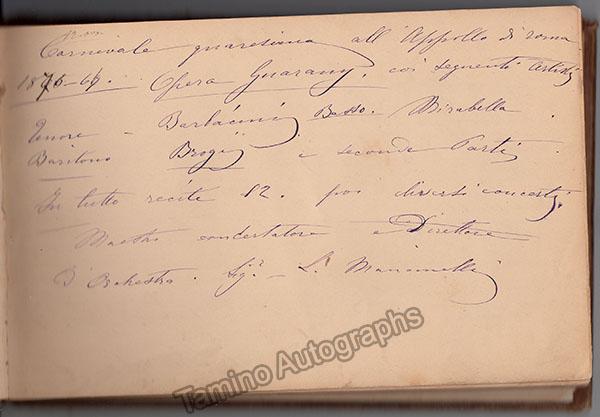 Carnevale quaresima all'Appollo di roma
1876-67. Opera Guarany. coi seguenti artisti
Tenore - Barbacini Basso. Mirabella.
Baritono Brogi e seconde Parti
In tutto recite 12. poi diversi concerti.
Maestro concertatore e Direttore
D'Orchestra. Sigr. L. Mancinelli
Tamino Autographs